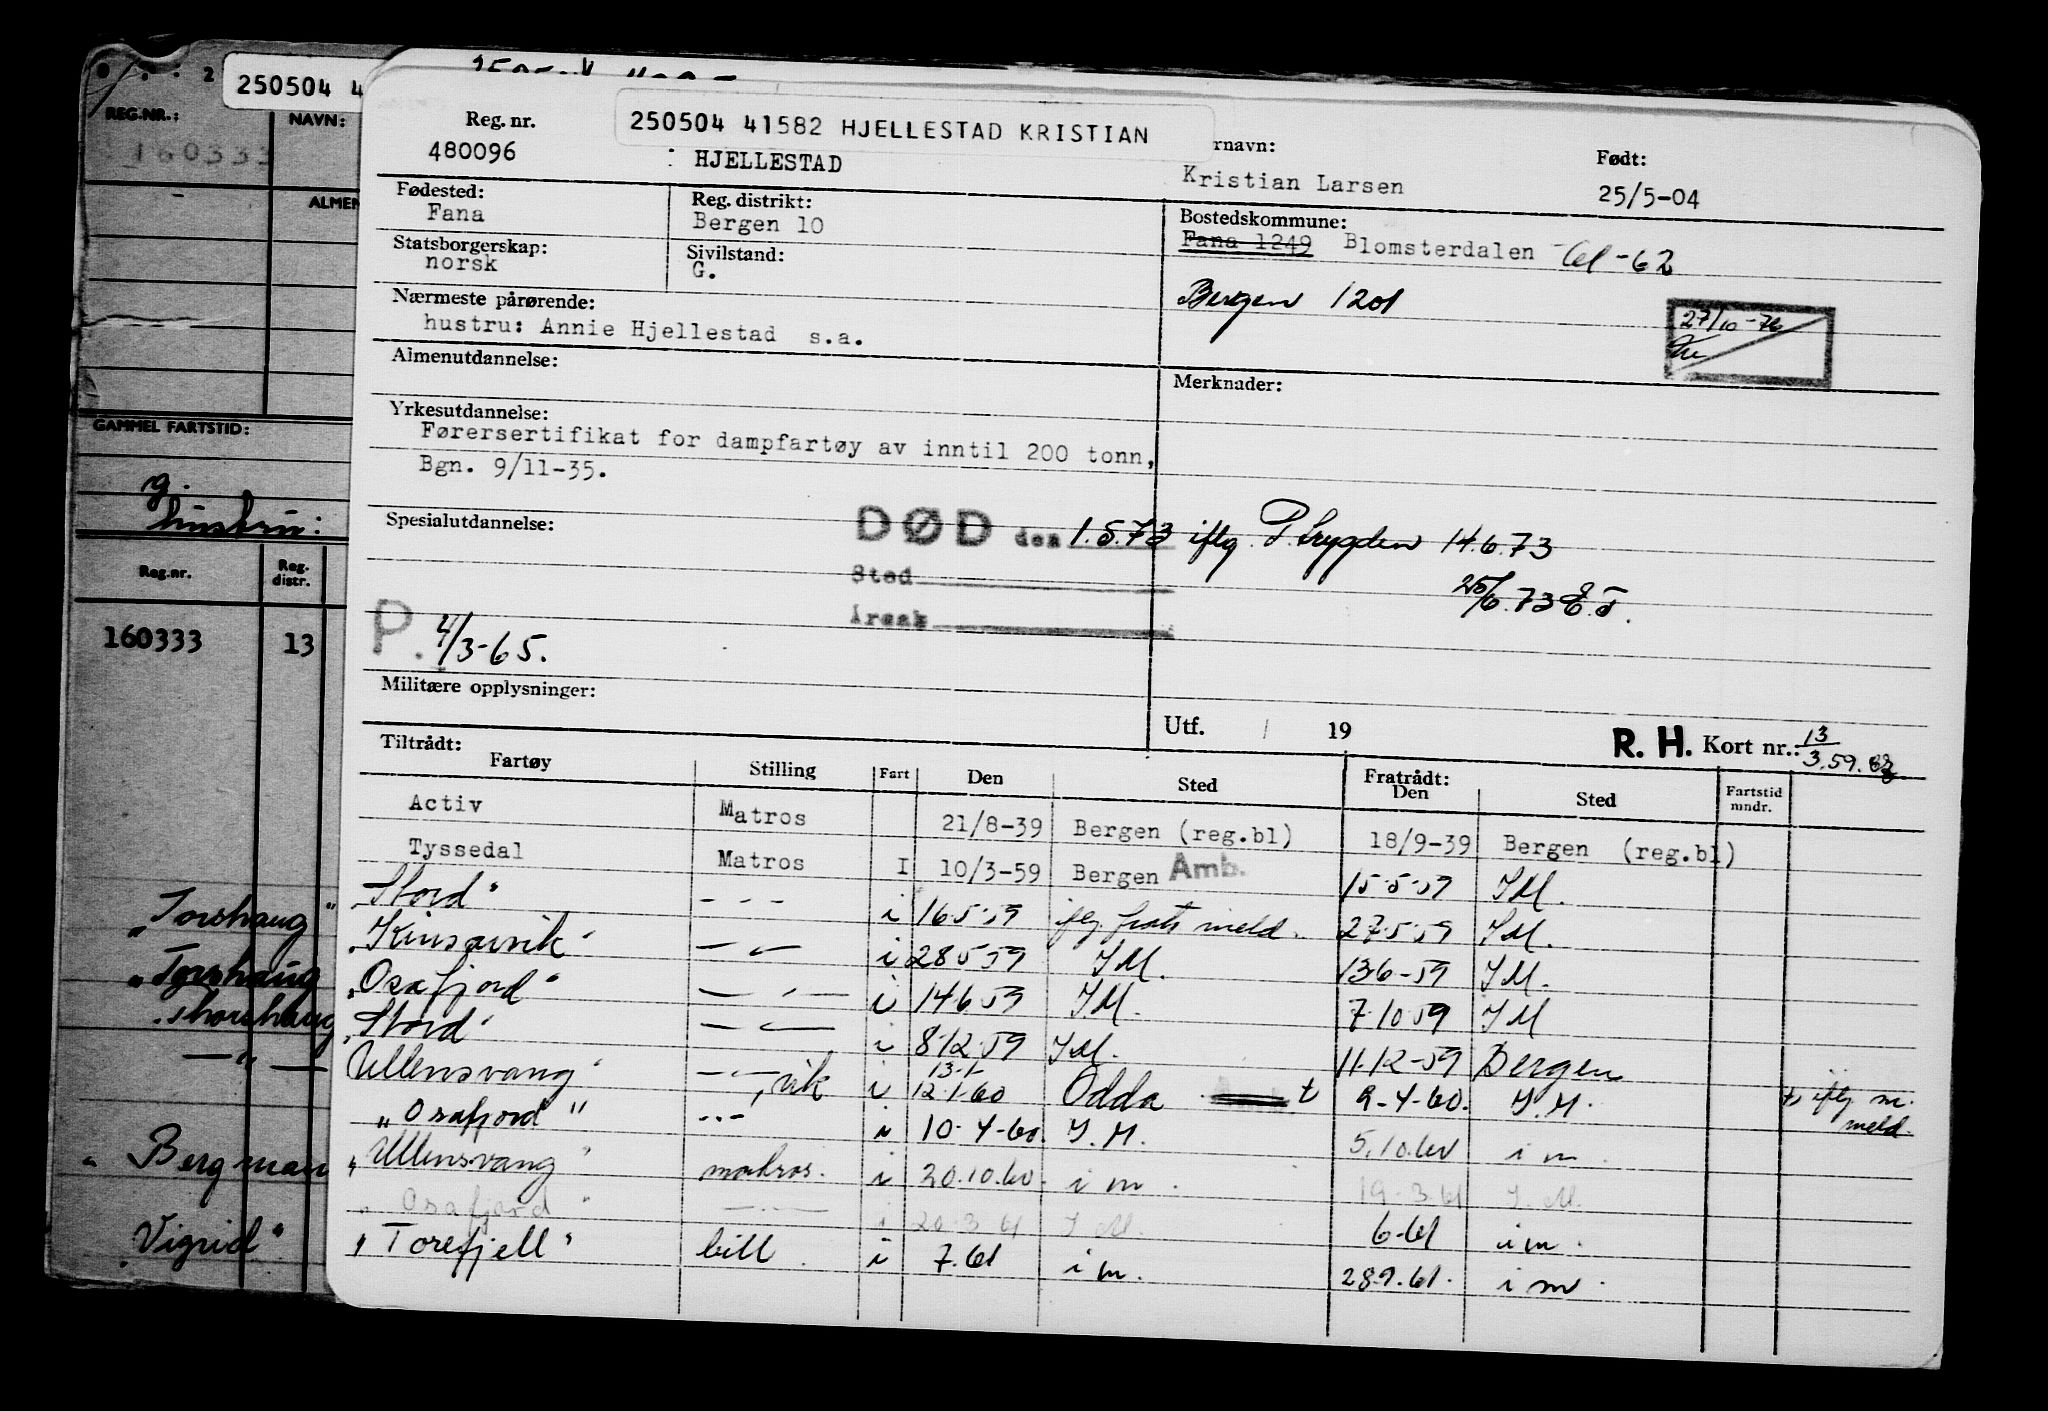 250504 4
REG.NR.:
NAVN:
160333
ALMEN
GAMMEL FARTSTID:
g.
hustru:
Reg.nr.
Reg. distr.
160333 13
„Torshaug"
„Torshaug
„Thorshaug
—"—
„Bergman
„Vigrid"
250504 41582 HJELLESTAD KRISTIAN
Reg. nr.
480096
: HJELLESTAD
rnavn:
Kristian Larsen
Født:
25/5-04
Fødested:
Fana
Reg. distrikt:
Bergen 10
Bostedskommune:
Fana 1249 Blomsterdalen -61-62
Bergen 1201
Statsborgerskap:
norsk
Sivilstand:
G.
27/10-76
Nærmeste pårørende:
hustru: Annie Hjellestad s.a.
Almenutdannelse:
Merknader:
Yrkesutdannelse:
Førersertifikat for dampfartøy av inntil 200 tonn,
Bgn. 9/11-35.
Spesialutdannelse:
DØD den 1.5.73 iflg. P.trygden 14.6.73
Sted
25/6.73 E.T.
Årsak
P. 4/3-65.
Militære opplysninger:
Utf. / 19
R. H. Kort nr.: 13/3.59.
Tiltrådt:
Fartøy Stilling Fart Den Sted Fratrådt: Den Sted Fartstid mndr.
Activ Matros 21/8-39 Bergen (reg.bl) 18/9-39 Bergen (reg.bl)
Tyssedal Matros I 10/3-59 Bergen Amb. 15-5-59 I M.
Stord" -"- i 16.5.59 iflg fratr meld. 27.5.59 I M.
„Kinsarvik" -"- i 28.5.59 I M. 13.6-59 I M.
„Osafjord" -"- i 14.6.59 I M. 7.10.59 I M
„Stord" -"- i 8.12.59 I M. 11.12-59 Bergen
Ullensvang" -"-, vik i 13.1 12.1.60 Odda t 9-4-60. I.M. t, iflg m. meld.
„Osafjord" -"- i 10-4-60. I.M. 5.10.60 i m.
„Ullensvang" matros. i 20.10.60. i m. 19-3.61 I.M.
„Osafjord" -"- i 20-3 61 I M. 6-61 i m.
„Torefjell" bill i 7.61 i m. 28.9.61. i m.